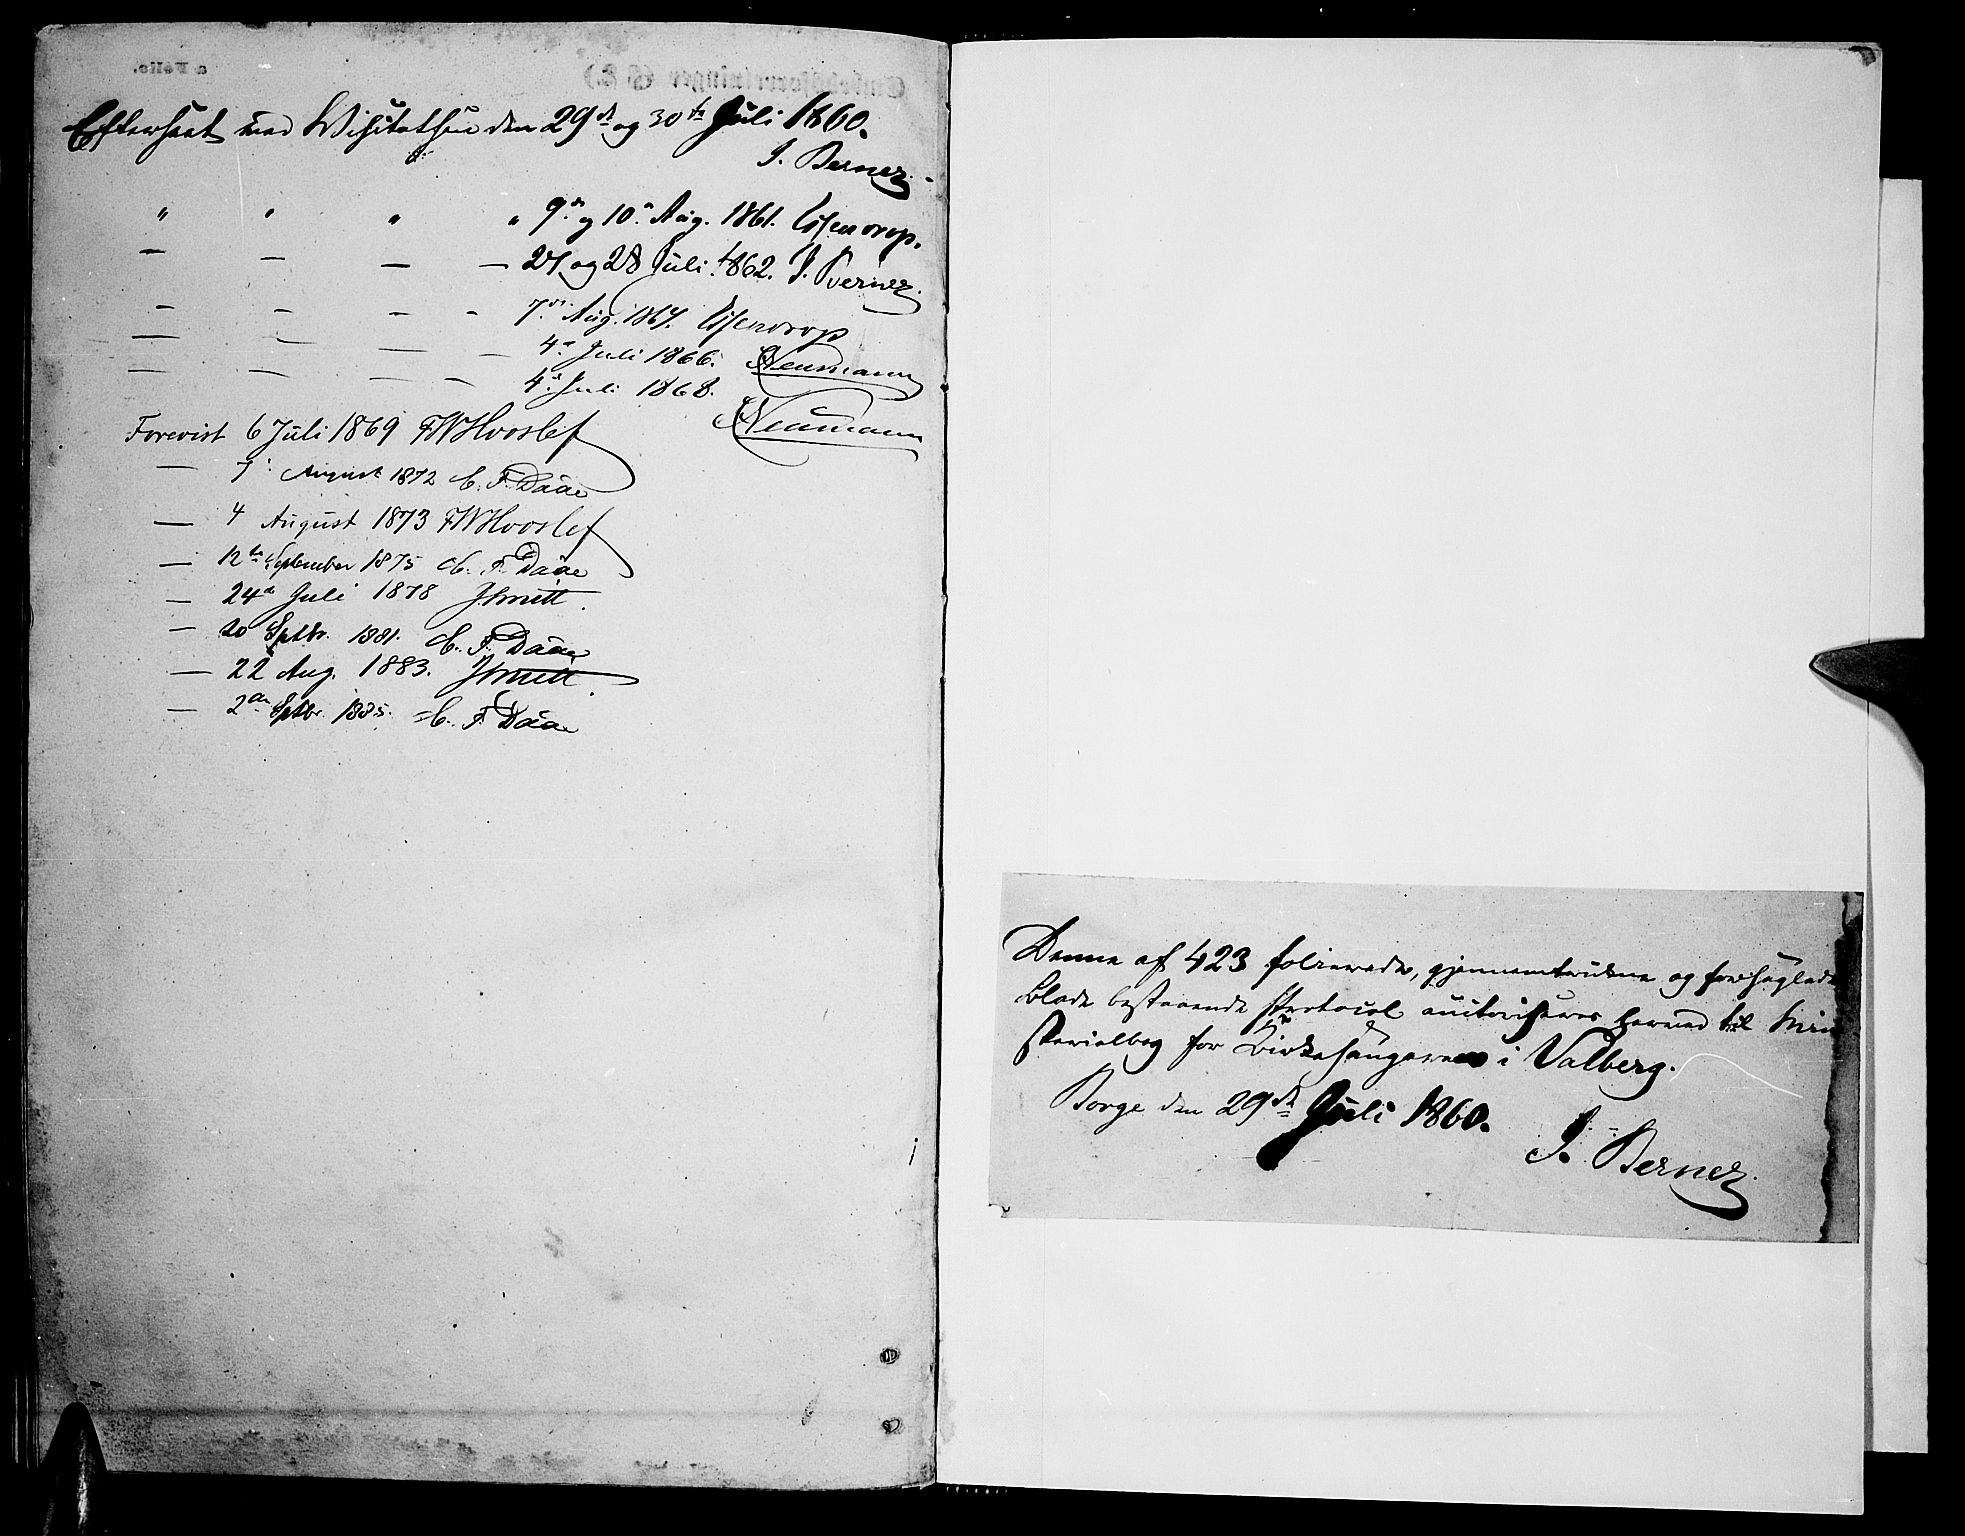 Efterseet ved Visitatsen den 29de og 30te Juli 1860.
J. Berner.
" " " " 9de og 10de Aug. 1861. Essendrop.
— — — — 27 og 28 Juli 1862. J. Berner.
— — — — 7de Aug. 1864. Essendrop
— — — — 4de Juli 1866. Neumann
— — — — 4de Juli 1868.
Neumann
Forevist 6 Juli 1869 FWHvoslef
— 7de August 1872 C. F. Daae
— 4 August 1873 FWHvoslef
— 12te September 1875 C. F. Daae
— 24de Juli 1878 JSmitt.
— 20 Septbr. 1881. C. F. Daae
— 22 Aug. 1883. JSmitt.
— 2den Septbr. 1885. C. F. Daae
Denne af 423 folierede, gjennemtrukne og forseglede
Blade bestaaende Protocol autoriseres herved til Mini
sterialbog for Kirkesangeren i Valberg.
Borge den 29de Juli 1860.
J. Berner.